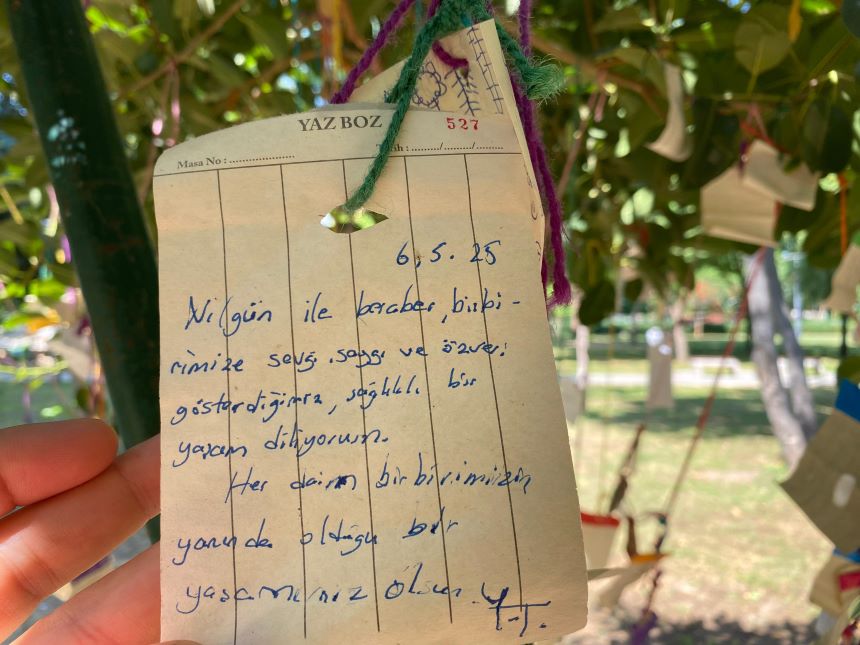 YAZ BOZ 527
Masa No : .................... Tarih : ......../......../........
6,5.25
Nilgün ile beraber, birbi-
rimize sevgi, saygı ve özveri
gösterdiğimiz, sağlıklı bir
yaşam diliyorum.
Her daim birbirimizin
yanında olduğu bir
yaşamımız olsun
Y.T.